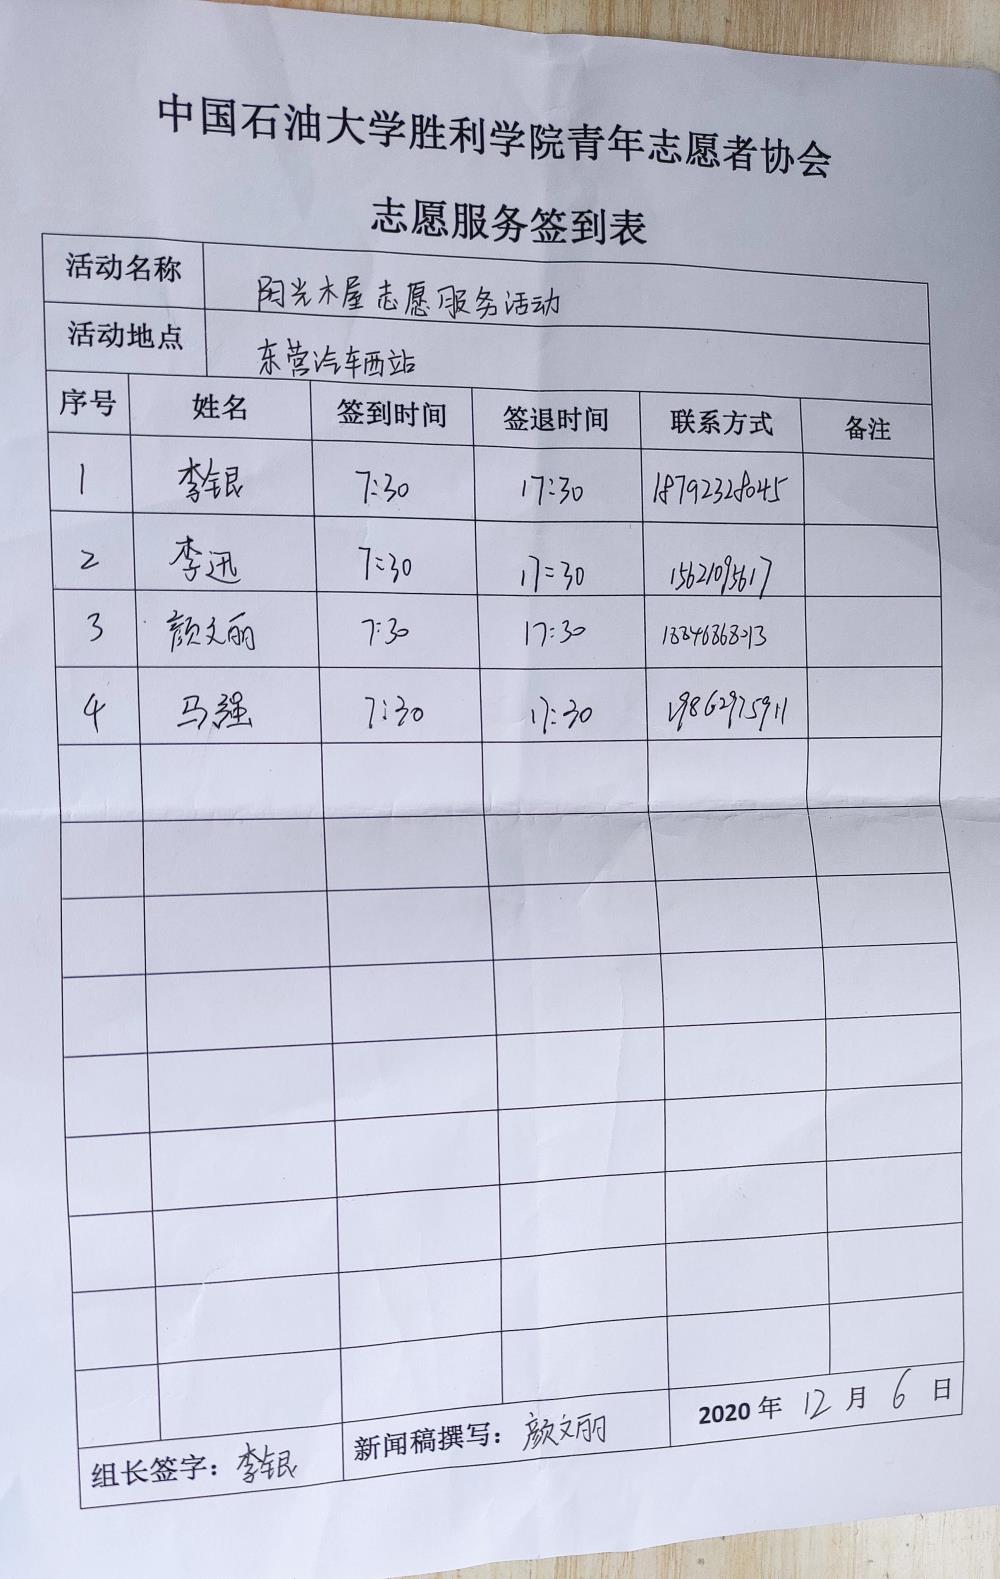 中国石油大学胜利学院青年志愿者协会
志愿服务签到表
活动名称 阳光木屋志愿服务活动
活动地点 东营汽车西站
序号 姓名 签到时间 签退时间 联系方式 备注
1 李银 7:30 17:30 18792328045
2 李迅 7:30 17:30 15621095617
3 颜文丽 7:30 17:30
4 马强 7:30 17:30 19862975911
组长签字：李银 新闻稿撰写：颜文丽 2020年 12月 6日